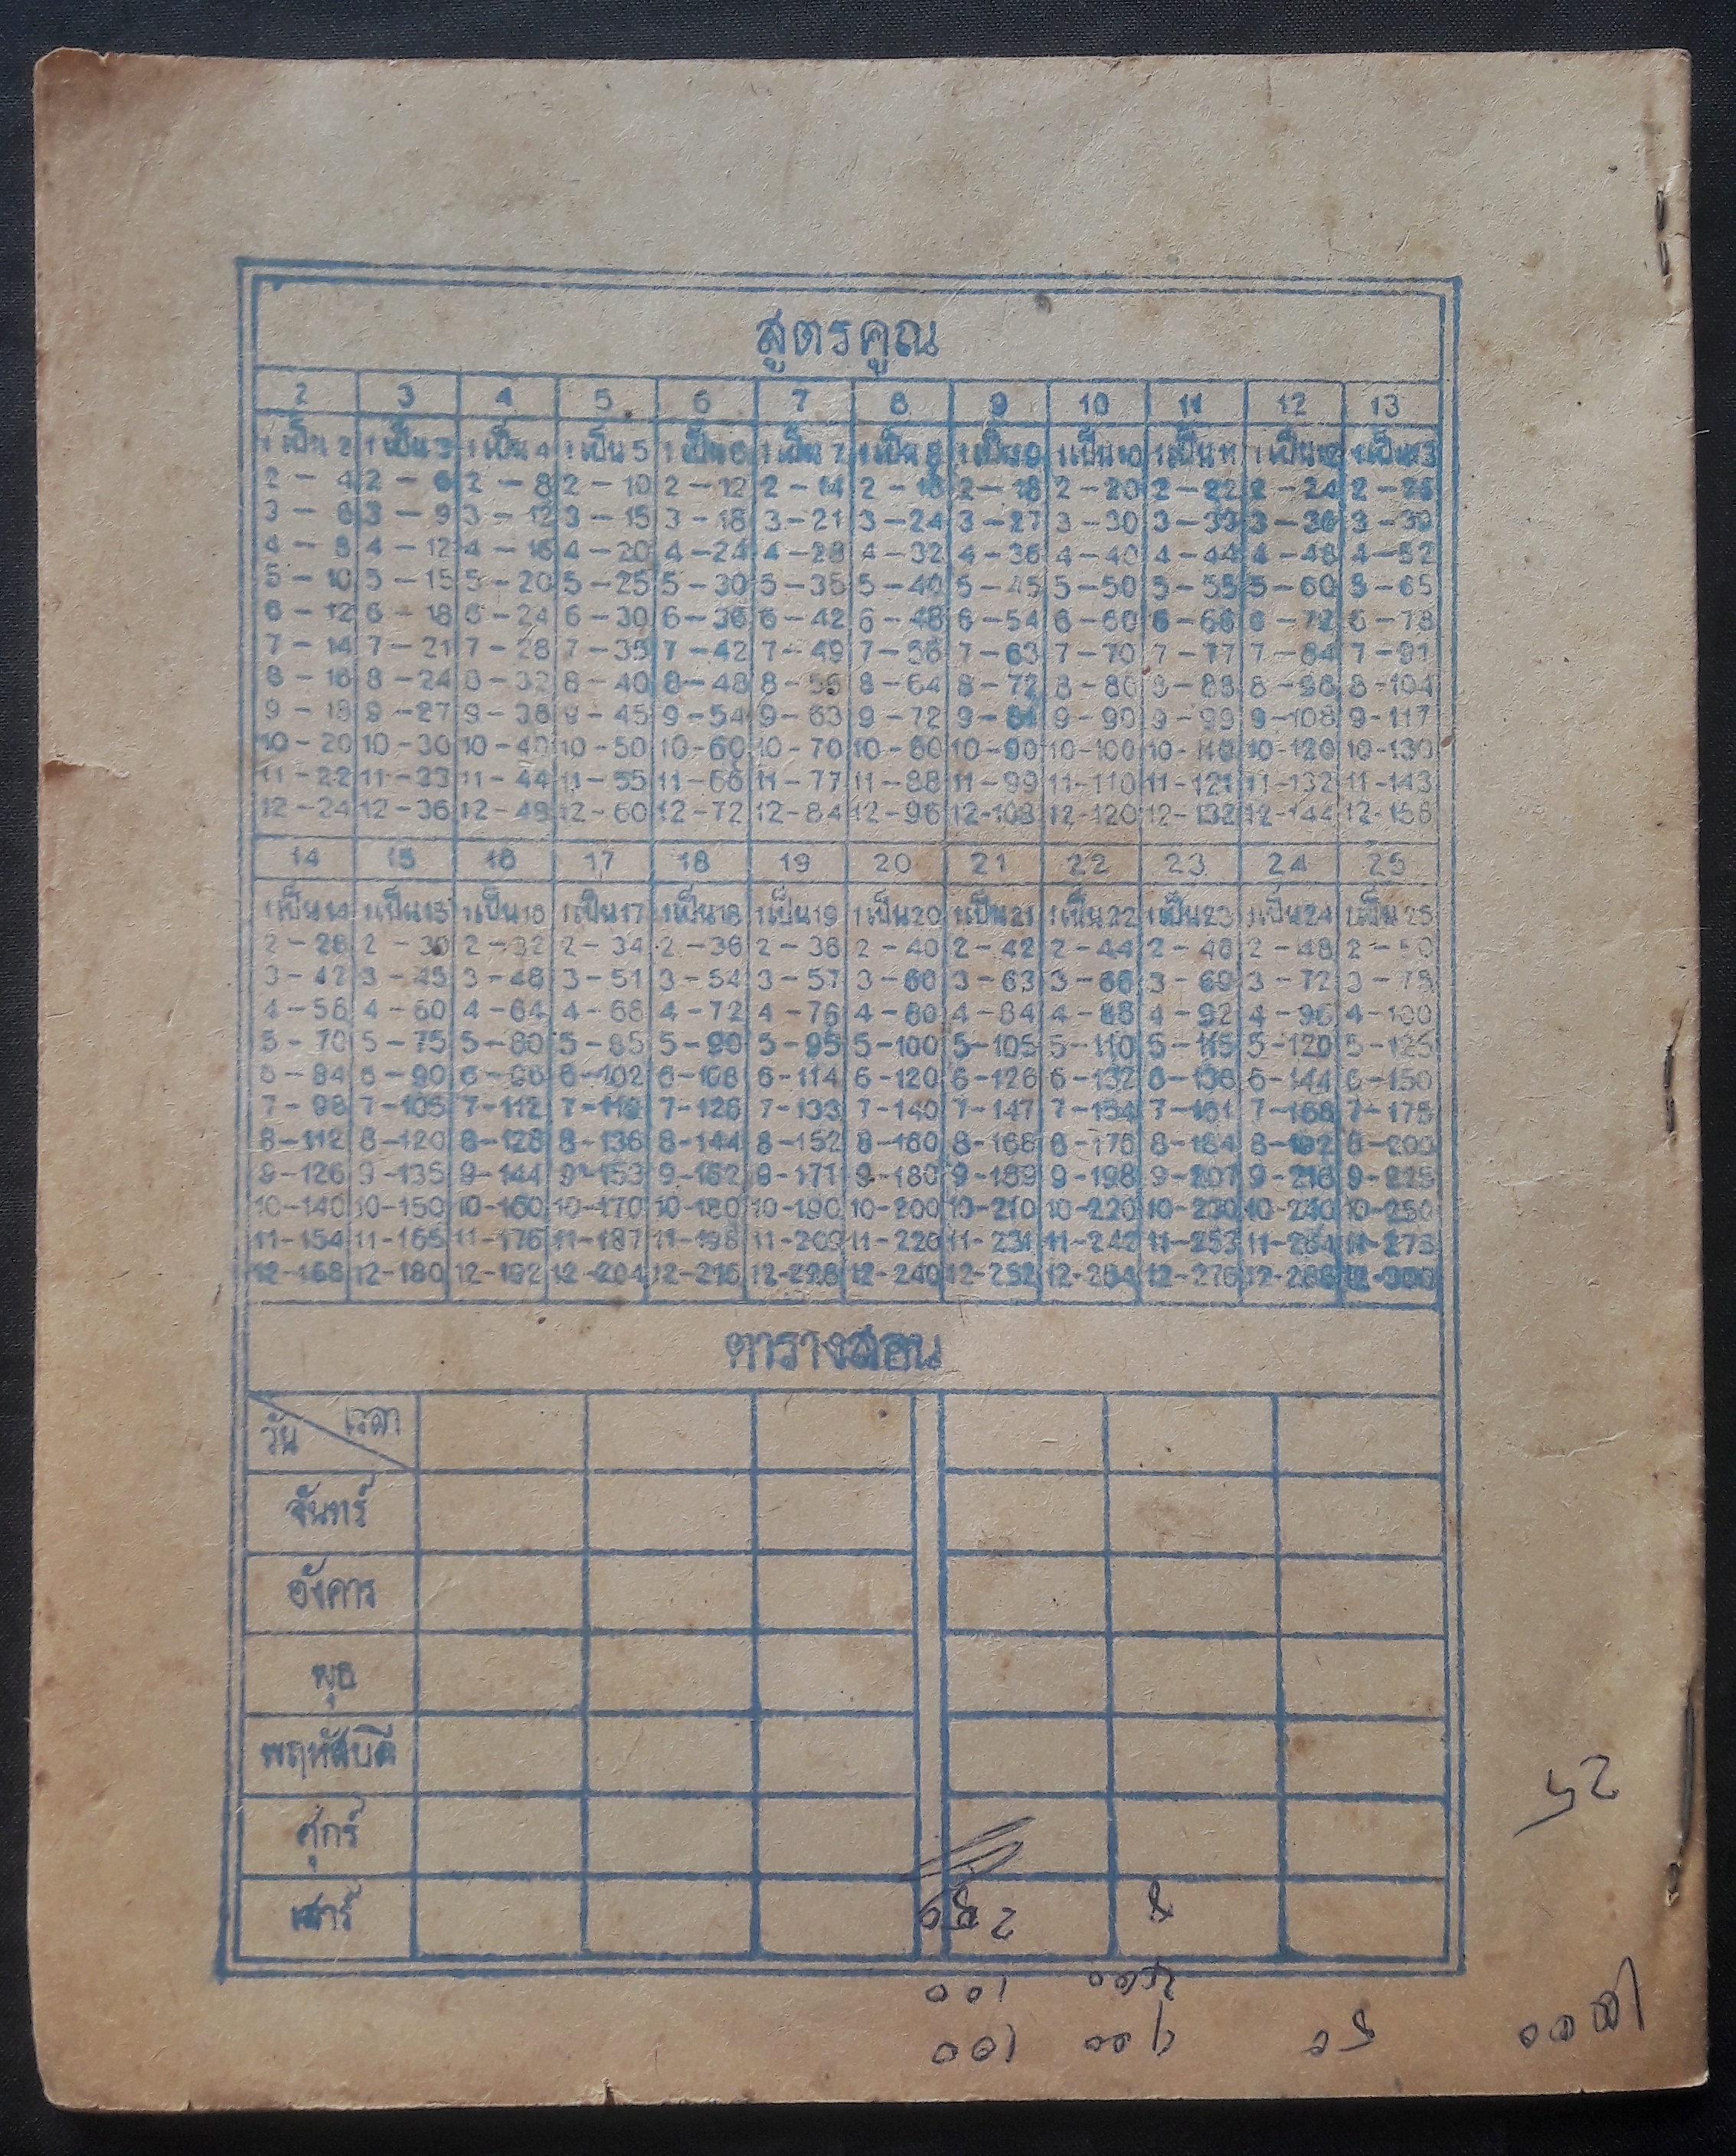 สูตรคูณ
2 3 4 5 6 7 8 9 10 11 12 13
1 เป็น 2 1 เป็น 3 1 เป็น 4 1 เป็น 5 1 เป็น 6 1 เป็น 7 1 เป็น 8 1 เป็น 9 1 เป็น 10 1 เป็น 11 1 เป็น 12 1 เป็น 13
2 - 4 2 - 6 2 - 8 2 - 10 2 - 12 2 - 14 2 - 16 2 - 18 2 - 20 2 - 22 2 - 24 2 - 26
3 - 6 3 - 9 3 - 12 3 - 15 3 - 18 3 - 21 3 - 24 3 - 27 3 - 30 3 - 33 3 - 36 3 - 39
4 - 8 4 - 12 4 - 16 4 - 20 4 - 24 4 - 28 4 - 32 4 - 36 4 - 40 4 - 44 4 - 48 4 - 52
5 - 10 5 - 15 5 - 20 5 - 25 5 - 30 5 - 35 5 - 40 5 - 45 5 - 50 5 - 55 5 - 60 5 - 65
6 - 12 6 - 18 6 - 24 6 - 30 6 - 36 6 - 42 6 - 48 6 - 54 6 - 60 6 - 66 6 - 72 6 - 78
7 - 14 7 - 21 7 - 28 7 - 35 7 - 42 7 - 49 7 - 56 7 - 63 7 - 70 7 - 77 7 - 84 7 - 91
8 - 16 8 - 24 8 - 32 8 - 40 8 - 48 8 - 56 8 - 64 8 - 72 8 - 80 8 - 88 8 - 96 8 - 104
9 - 18 9 - 27 9 - 36 9 - 45 9 - 54 9 - 63 9 - 72 9 - 81 9 - 90 9 - 99 9 - 108 9 - 117
10 - 20 10 - 30 10 - 40 10 - 50 10 - 60 10 - 70 10 - 80 10 - 90 10 - 100 10 - 110 10 - 120 10 - 130
11 - 22 11 - 33 11 - 44 11 - 55 11 - 66 11 - 77 11 - 88 11 - 99 11 - 110 11 - 121 11 - 132 11 - 143
12 - 24 12 - 36 12 - 48 12 - 60 12 - 72 12 - 84 12 - 96 12 - 108 12 - 120 12 - 132 12 - 144 12 - 156
14 15 16 17 18 19 20 21 22 23 24 25
1 เป็น 14 1 เป็น 15 1 เป็น 16 1 เป็น 17 1 เป็น 18 1 เป็น 19 1 เป็น 20 1 เป็น 21 1 เป็น 22 1 เป็น 23 1 เป็น 24 1 เป็น 25
2 - 28 2 - 30 2 - 32 2 - 34 2 - 36 2 - 38 2 - 40 2 - 42 2 - 44 2 - 46 2 - 48 2 - 50
3 - 42 3 - 45 3 - 48 3 - 51 3 - 54 3 - 57 3 - 60 3 - 63 3 - 66 3 - 69 3 - 72 3 - 75
4 - 56 4 - 60 4 - 64 4 - 68 4 - 72 4 - 76 4 - 80 4 - 84 4 - 88 4 - 92 4 - 96 4 - 100
5 - 70 5 - 75 5 - 80 5 - 85 5 - 90 5 - 95 5 - 100 5 - 105 5 - 110 5 - 115 5 - 120 5 - 125
6 - 84 6 - 90 6 - 96 6 - 102 6 - 108 6 - 114 6 - 120 6 - 126 6 - 132 6 - 138 6 - 144 6 - 150
7 - 98 7 - 105 7 - 112 7 - 119 7 - 126 7 - 133 7 - 140 7 - 147 7 - 154 7 - 161 7 - 168 7 - 175
8 - 112 8 - 120 8 - 128 8 - 136 8 - 144 8 - 152 8 - 160 8 - 168 8 - 176 8 - 184 8 - 192 8 - 200
9 - 126 9 - 135 9 - 144 9 - 153 9 - 162 9 - 171 9 - 180 9 - 189 9 - 198 9 - 207 9 - 216 9 - 225
10 - 140 10 - 150 10 - 160 10 - 170 10 - 180 10 - 190 10 - 200 10 - 210 10 - 220 10 - 230 10 - 240 10 - 250
11 - 154 11 - 165 11 - 176 11 - 187 11 - 198 11 - 209 11 - 220 11 - 231 11 - 242 11 - 253 11 - 264 11 - 275
12 - 168 12 - 180 12 - 192 12 - 204 12 - 216 12 - 228 12 - 240 12 - 252 12 - 264 12 - 276 12 - 288 12 - 300
ตารางสอน
วัน เวลา
จันทร์
อังคาร
พุธ
พฤหัสบดี
ศุกร์
เสาร์
25
100
50
100